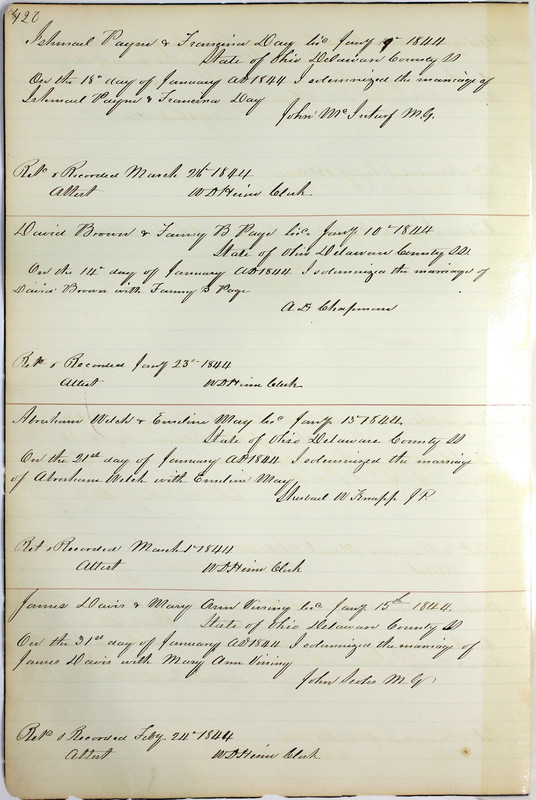 420
Ishmael Payne & Francina Day lic Jany 9th 1844
State of Ohio Delaware County SS
On the 18th day of January AD 1844 I solemnized the marriage of
Ishmael Payne & Francina Day
John McInturf M.G.
Retd & Recorded March 24th 1844
Attest W D Heim Clerk
David Brown & Fanny B Page licd Jany 10th 1844
State of Ohio Delaware County SS
On the 14th day of January AD 1844 I solemnized the marriage of
David Brown with Fanny B Page
A D Chapman
Retd & Recorded Jany 23rd 1844
Attest W D Heim Clerk
Abraham Welch & Emeline May licd Jany 15th 1844.
State of Ohio Delaware County SS
On the 21st day of January AD 1844 I solemnized the marriage
of Abraham Welch with Emeline May
W Knapp J P
Ret & Recorded March 1st 1844
Attest W D Heim Clerk
James Davis & Mary Ann Vining licd Jany 15th 1844.
State of Ohio Delaware County SS
On the 31st day of January AD 1844 I solemnized the marriage of
James Davis with Mary Ann Vining
John M.G.
Retd & Recorded Feby. 24th 1844
Attest W D Heim Clerk